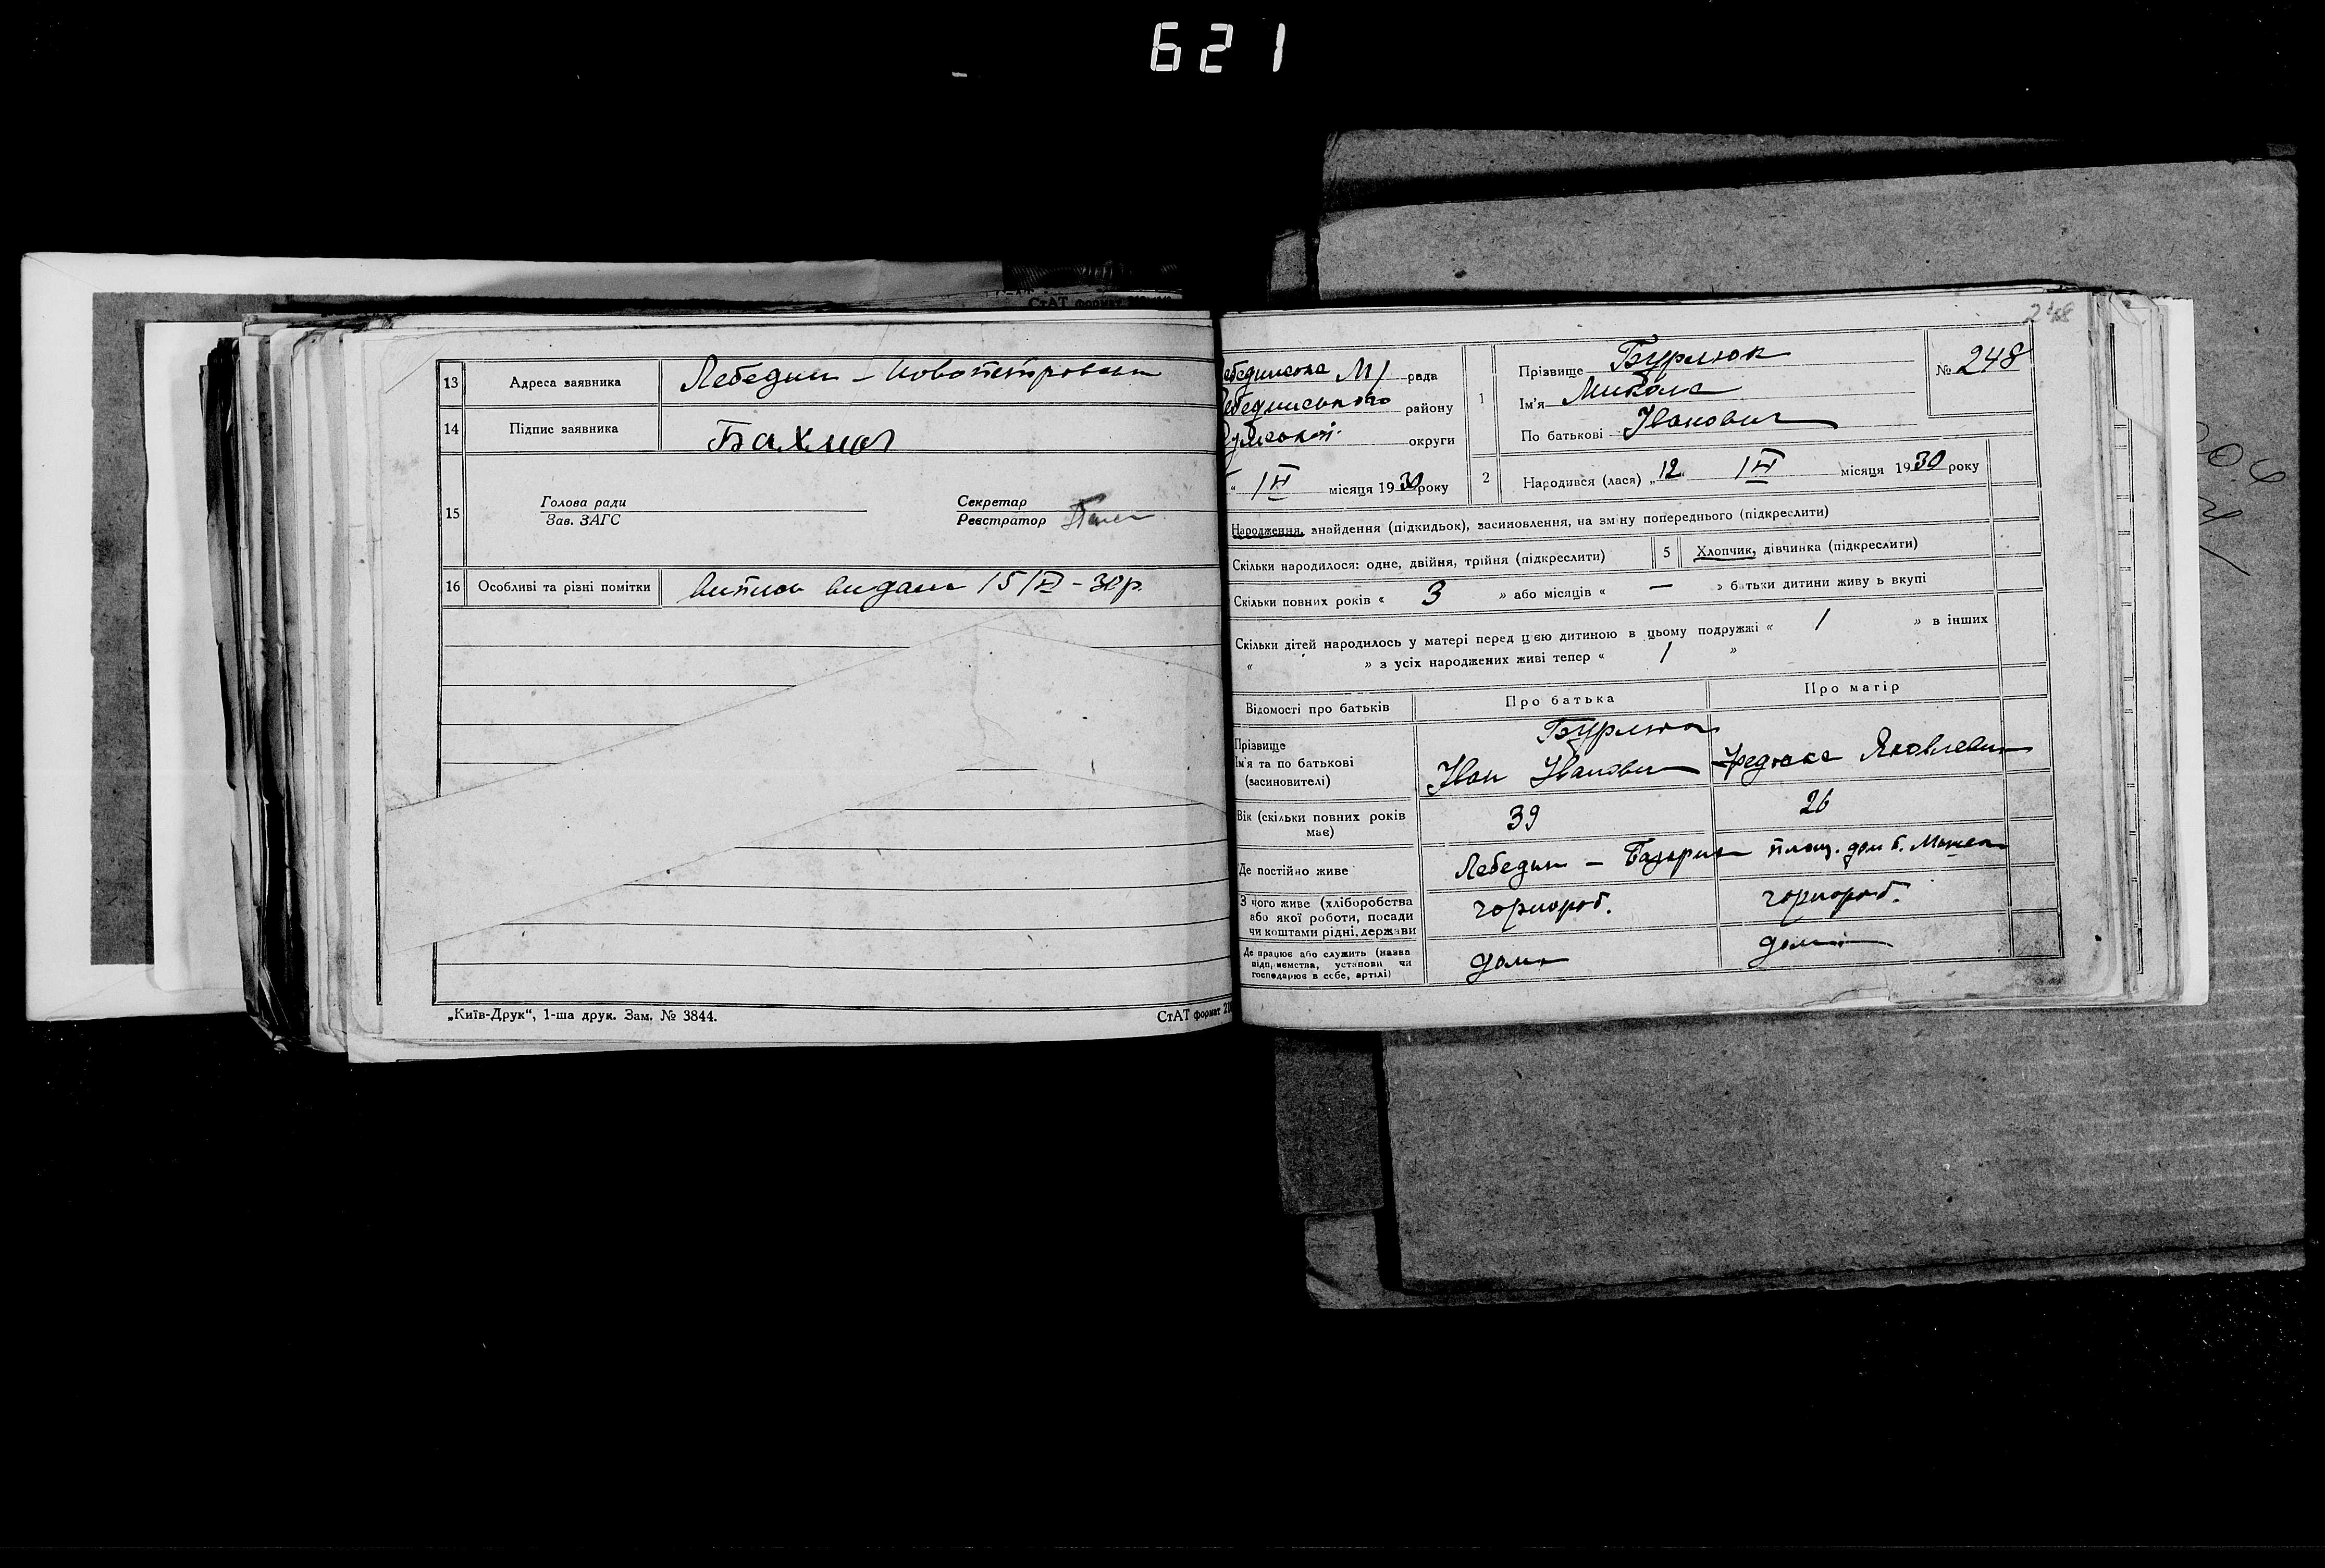 621
СтАТ формат
13 Адреса заявника Лебедин – Новопетровська
14 Підпис заявника Бахмач
15 Голова ради
Зав. ЗАГС
Секретар
Реєстратор
16 Особливі та різні помітки випись видана 15/IV – 30 р.
„Київ-Друк“, 1-ша друк. Зам. № 3844. СтАТ формат
248
Лебединська М/ рада
Лебединського району
Сумської округи
„ IV місяця 1930 року
1 Прізвище Бурлюк
Ім'я Микола
По батькові Іванович
№ 248
2 Народився (лася) „12“ IV місяця 1930 року
Народження, знайдення (підкидьок), засиновлення, на зміну попереднього (підкреслити)
Скільки народилося: одне, двійня, трійня (підкреслити) 5 Хлопчик, дівчинка (підкреслити)
Скільки повних років « 3 » або місяців « — » батьки дитини живуть вкупі
Скільки дітей народилось у матері перед цією дитиною в цьому подружжі « 1 » в інших
« » з усіх народжених живі тепер « 1 »
Відомості про батьків Про батька Про матір
Прізвище
Ім'я та по батькові
(засиновителі)
Бурлюк
Іван Іванович
Яковлевна
Вік (скільки повних років має) 39 26
Де постійно живе Лебедин – Базарна площ. дом б.
З чого живе (хліборобства
або якої роботи, посади
чи коштами рідні, держави
чорнороб. чорнороб.
Де працює або служить (назва
підприємства, установи чи
господарює в себе, артілі)
дома дома